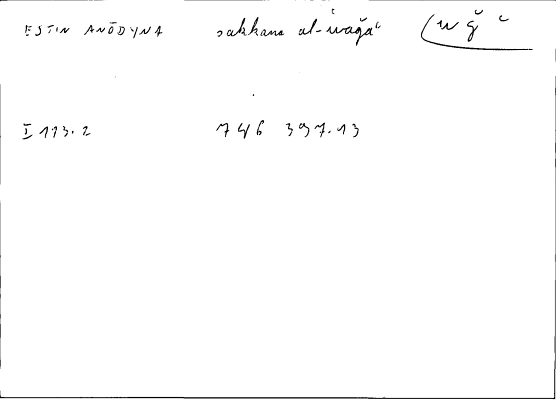 ESTIN ANŌDYNA sakkana al-waǧaʿ (w ǧ ʿ
I 113.2 746 397.13